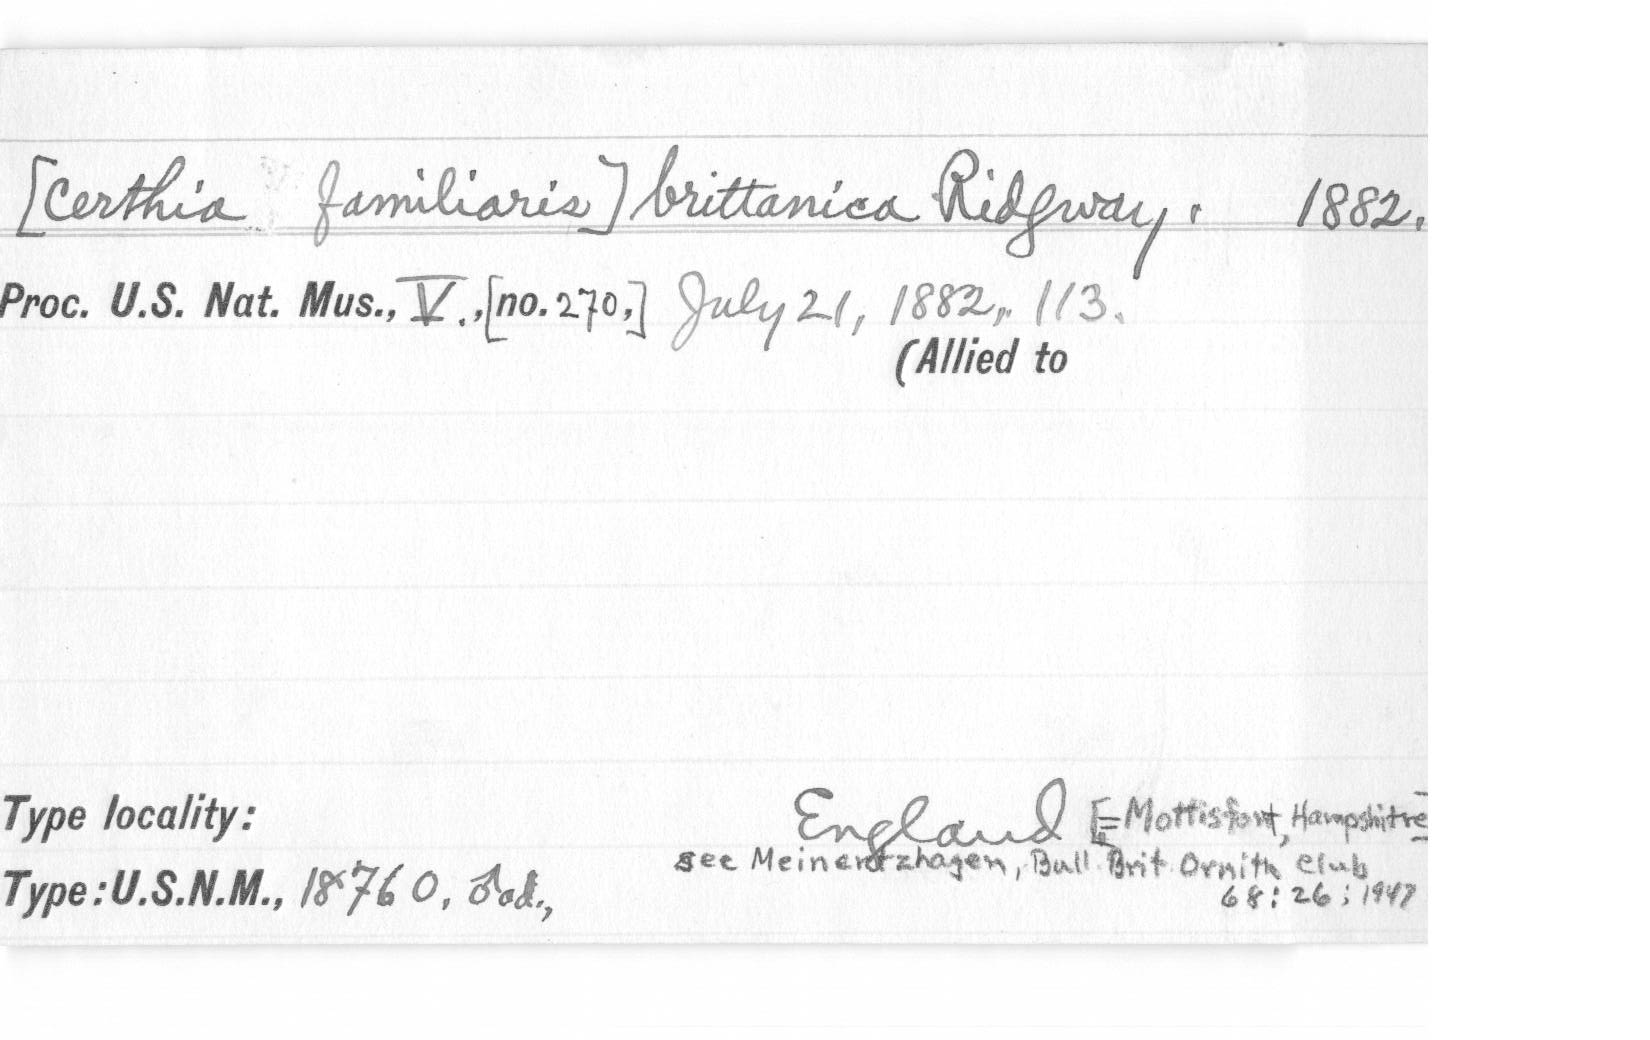 [Certhia familiaris] brittanica Ridgway. 1882.
Proc. U.S. Nat. Mus., V., [no. 270,] July 21, 1882, 113.
(Allied to
Type locality: England [= Mottisfont, Hampshire]
see Meinertzhagen, Bull. Brit. Ornith Club
68: 26; 1947
Type: U.S.N.M., 18760, ♂ ad.,